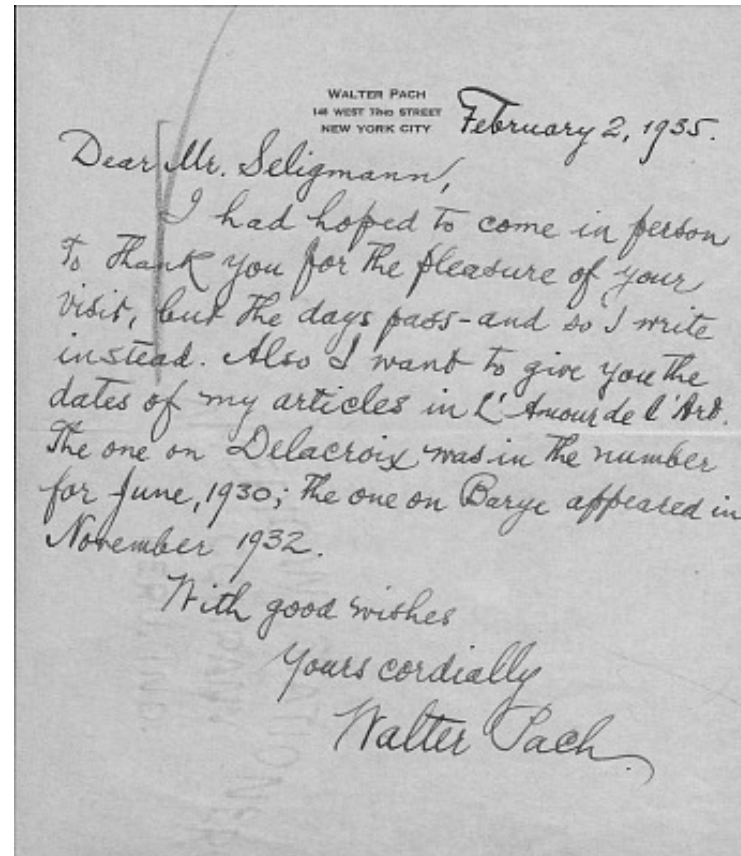 WALTER PACH
148 WEST 72ND STREET
NEW YORK CITY
February 2, 1935.
Dear Mr. Seligmann,
I had hoped to come in person
to thank you for the pleasure of your
visit, but the days pass-and so I write
instead. Also I want to give you the
dates of my articles in L'Amour de l'Art.
The one on Delacroix was in the number
for June, 1930; the one on Barye appeared in
November 1932.
With good wishes
Yours cordially
Walter Pach